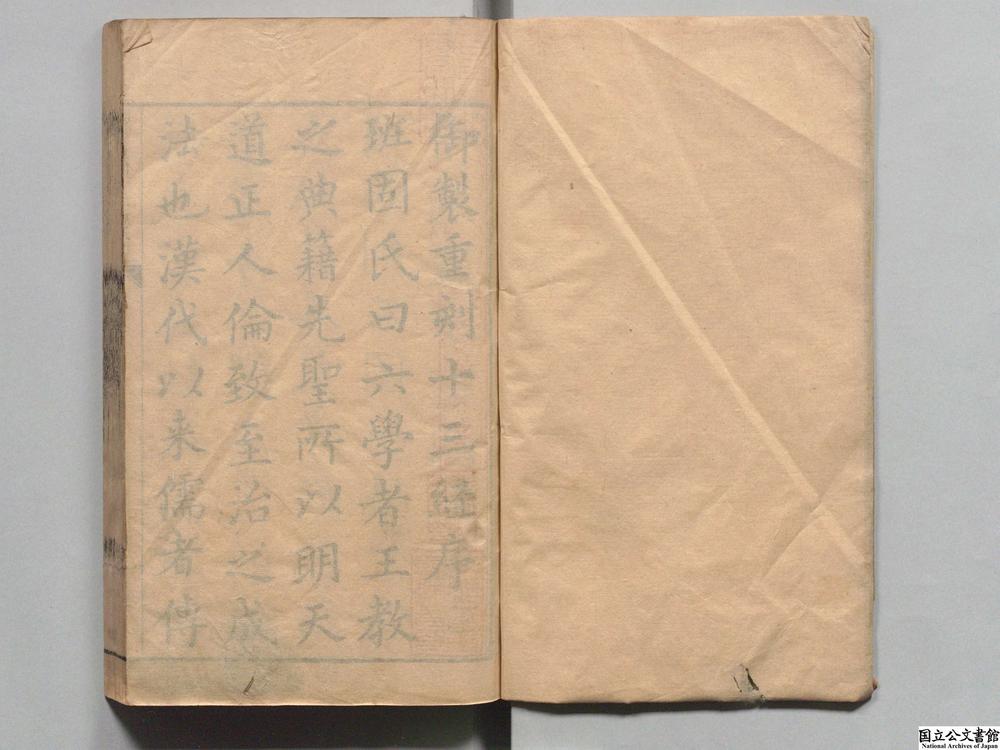 御製重刻十三經序
班固氏曰六學者王教
之典籍先聖所以明天
道正人倫致至治之成
法也漢代以来儒者傳
国立公文書館
National Archives of Japan